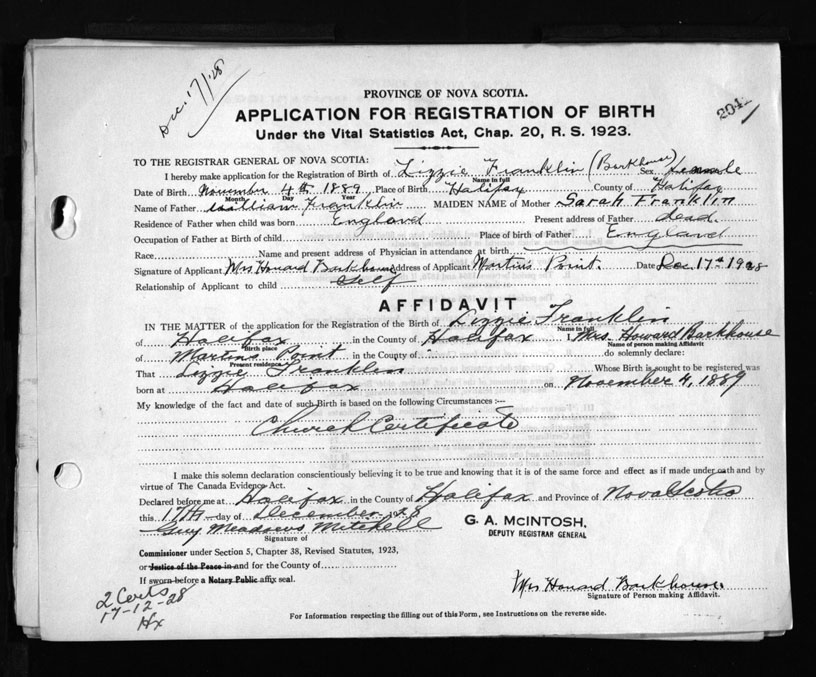 Dec. 17/28
204
PROVINCE OF NOVA SCOTIA.
APPLICATION FOR REGISTRATION OF BIRTH
Under the Vital Statistics Act, Chap. 20, R. S. 1923.
TO THE REGISTRAR GENERAL OF NOVA SCOTIA:
I hereby make application for the Registration of Birth of Lizzie Franklin (Barkhouse) Sex Female
Name in full
Date of Birth November 4th 1889 Place of Birth Halifax County of Halifax
Month Day Year
Name of Father William Franklin MAIDEN NAME of Mother Sarah Franklin
Residence of Father when child was born England Present address of Father dead.
Occupation of Father at Birth of child Place of birth of Father England
Race Name and present address of Physician in attendance at birth
Signature of Applicant Mrs Howard Barkhouse Address of Applicant Martins Point. Date Dec. 17th 1928
Relationship of Applicant to child Self
AFFIDAVIT
IN THE MATTER of the application for the Registration of the Birth of Lizzie Franklin
of Halifax in the County of Halifax I, Mrs. Howard Barkhouse
Birth place Name of person making Affidavit
of Martins Point in the County of do solemnly declare:
Present residence
That Lizzie Franklin Whose Birth is sought to be registered was
born at Halifax on November 4, 1889
My knowledge of the fact and date of such Birth is based on the following Circumstances :—
Church Certificate
I make this solemn declaration conscientiously believing it to be true and knowing that it is of the same force and effect as if made under oath and by
virtue of The Canada Evidence Act.
Declared before me at Halifax in the County of Halifax and Province of Nova Scotia
this 17th day of December 1928
Guy Meadows Mitchell
Signature of
G. A. McINTOSH,
DEPUTY REGISTRAR GENERAL
Commissioner under Section 5, Chapter 38, Revised Statutes, 1923,
or Justice of the Peace in and for the County of
If sworn before a Notary Public affix seal.
2 Certs
17-12-28
Hx
Mrs Howard Barkhouse.
Signature of Person making Affidavit.
For Information respecting the filling out of this Form, see Instructions on the reverse side.